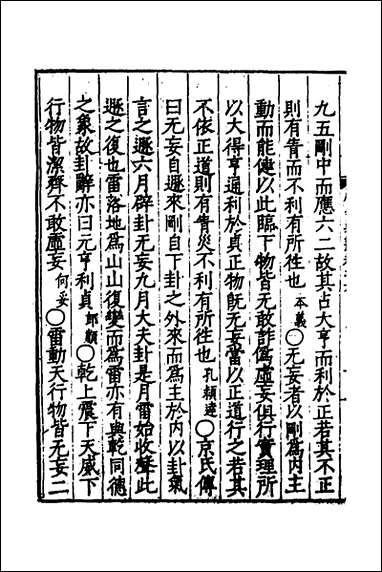 九五剛中而應六二故其占大亨而利於正若其不正
則有眚而不利有所往也本義〇无妄者以剛為内主
動而能健以此臨下物皆无敢詐偽虛妄俱行實理所
以大得亨通利於貞正物旣无妄當以正道行之若其
不依正道則有眚災不利有所往也孔穎達〇京氏傳
曰无妄自遯來剛自下卦之外來而為主於内以卦氣
言之遯六月辟卦无妄九月大夫卦是月雷始收聲此
遯之復也雷落地為山山復變而為雷亦有與乾同德
之象故卦辭亦曰元亨利貞郎顗〇乾上震下天威下
行物皆潔齊不敢虛妄何妥〇雷動天行物皆无妄二